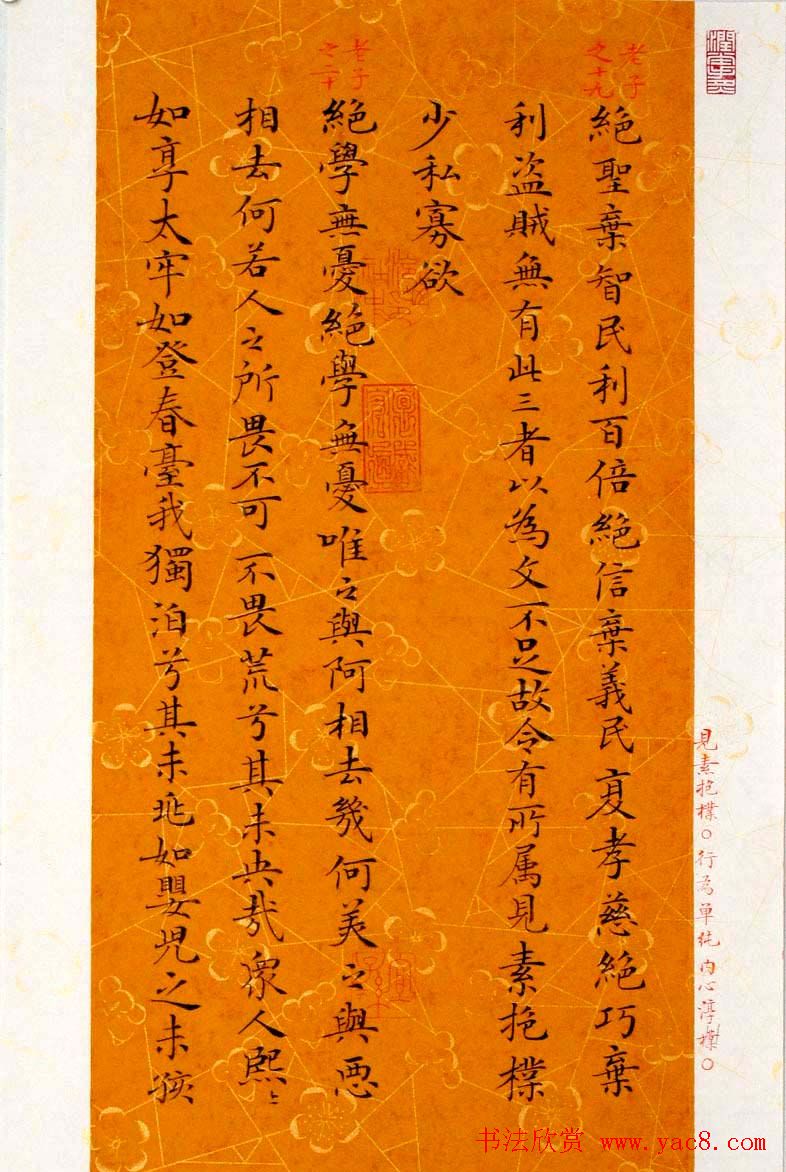 老子
之十九
絕聖棄智民利百倍絕信棄義民復孝慈絕巧棄
利盗賊無有此三者以為文不足故令有所属見素抱樸
少私寡欲
老子
之二十
絕學無憂絕學無憂唯之與阿相去幾何美之與惡
相去何若人之所畏不可不畏荒兮其未央哉眾人熙〻
如享太牢如登春臺我獨泊兮其未兆如嬰児之未孩
見素抱樸○行為单純内心淳樸○
书法欣赏 www.yac8.com